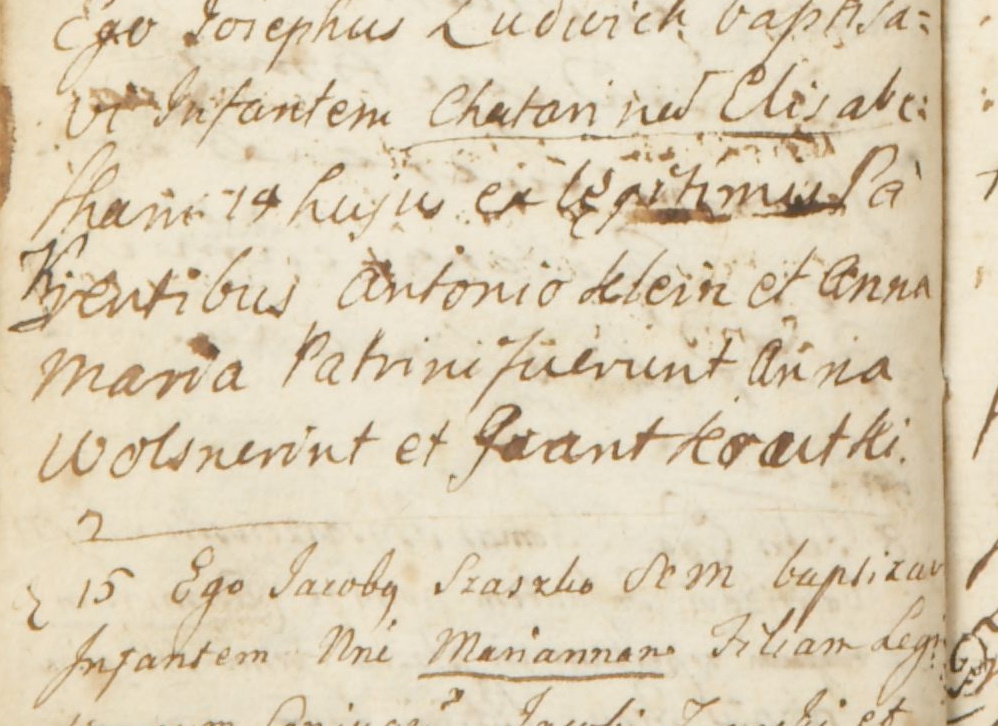 Ego Josephus Ludwick baptisa=
vi Infantem Chatarinam Elisabe:
tham 14 hujus ex legitimis Pa
rentibus Antonio Klein et Anna
Maria Patrini fuerunt Anna
Wolsnerint et Frant Krautki.
15 Ego Jacobq Szaszko SCM baptizavi
Infantem Nné Mariannam Filiam Legi:
et